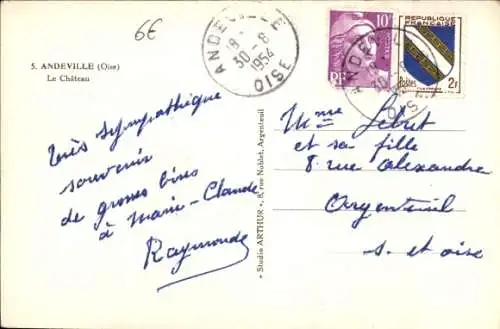 6€
5. ANDEVILLE (Oise)
Le Château
ANDEVILLE
18-
30-8
1954
OISE
10F
RF
REPUBLIQUE FRANÇAISE
Postes
2F
Très sympathique
souvenir
de grosses bises
à Marie-Claude
Raymonde
Studio ARTHUR, 8, rue Noblet, Argenteuil
Mme Lebret
et sa fille
8 rue Alexandre
Argenteuil
S. et Oise